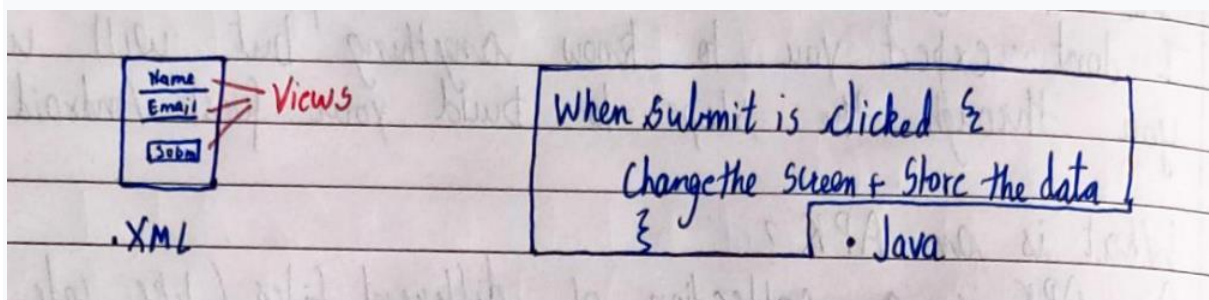 Name
Email
Subm
Views
.XML
When submit is clicked {
Change the screen + Store the data
}
. Java